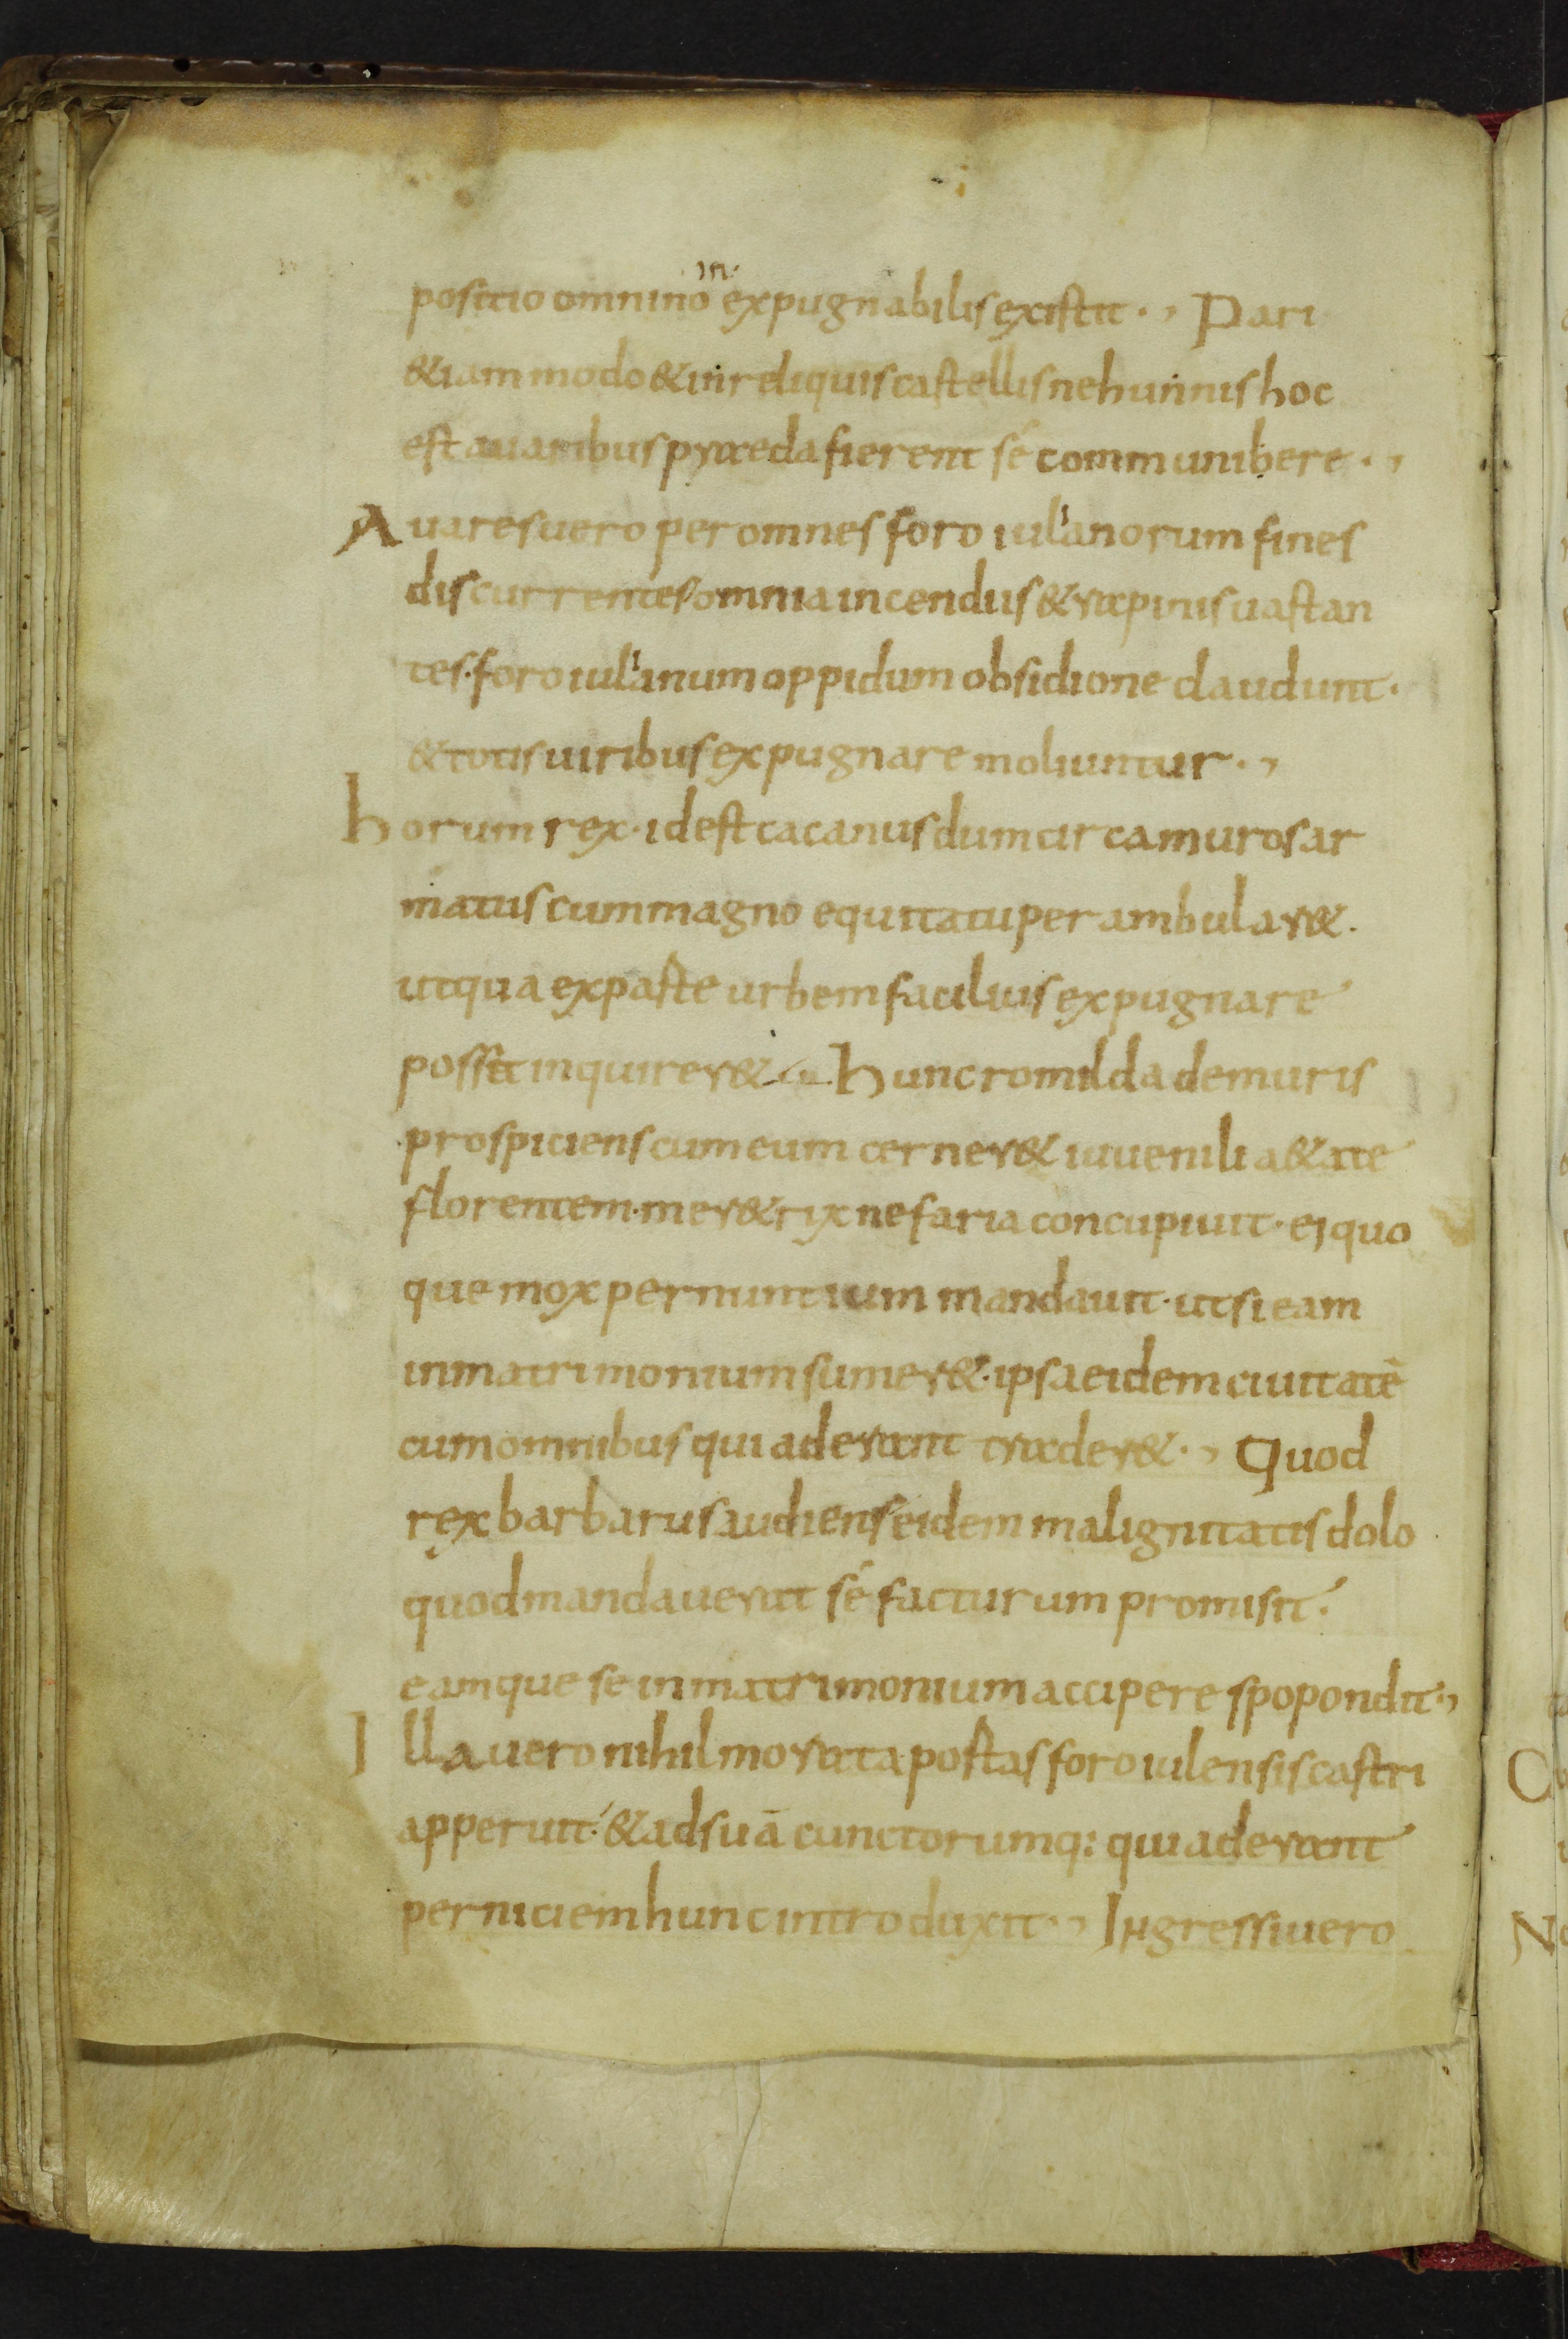 positio omnino in expugnabilis existit · , Pari
& iam modo & in reliquis castellis ne hunnis hoc
est auaribus praeda fierent sé communibere · ,
Auares uero per omnes foro iulianorum fines
discurrentes omnia incendiis & rapinis uastan
tes · foro iulianum oppidum obsidione claudunt ·
& totis uiribus expugnare moliuntur · ,
horum rex · id est cacanus dum circa muros ar
matus cum magno equitatu perambular& ·
ut qua ex paste urbem facilius expugnare
possit inquirer& hunc romilda de muris
prospiciens cum eum cerner& iuuenili a&ate
florentem · mer&rix nefaria concupiuit · ei quo
que mox per nuntium mandauit · ut si eam
in matrimonium sumer& · ipsa eidem ciuitatē
cum omnibus qui aderant trader& · , Quod
rex barbarus audiens eidem malignitatis dolo
quod mandauerat sé facturum promisit ·
eamque se in matrimonium accipere spopondit · ,
Illa uero nihil morata postas foroiulensis castri
apperuit · & ad suā cunctorumq: qui aderant
perniciem hunc introduxit · , Ingressi uero